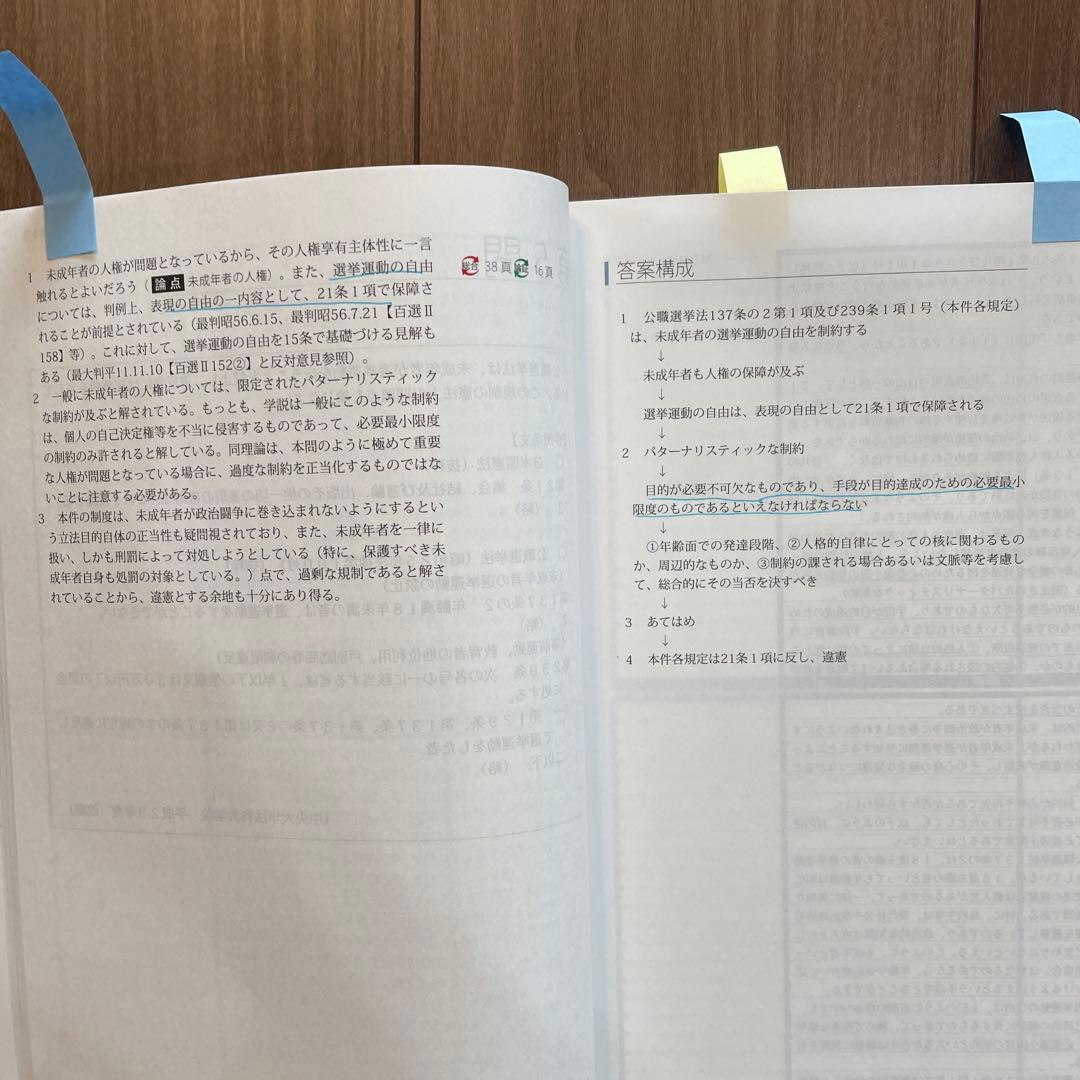 1 未成年者の人権が問題となっているから、その人権享有主体性に一言
触れるとよいだろう（論点 未成年者の人権）。また、選挙運動の自由
については、判例上、表現の自由の一内容として、21条1項で保障さ
れることが前提とされている（最判昭56.6.15、最判昭56.7.21【百選Ⅱ
158】等）。これに対して、選挙運動の自由を15条で基礎づける見解も
ある（最大判平11.11.10【百選Ⅱ152②】と反対意見参照）。
2 一般に未成年者の人権については、限定されたパターナリスティック
な制約が及ぶと解されている。もっとも、学説は一般にこのような制約
は、個人の自己決定権等を不当に侵害するものであって、必要最小限度
の制約のみ許されると解している。同理論は、本問のように極めて重要
な人権が問題となっている場合に、過度な制約を正当化するものではな
いことに注意する必要がある。
3 本件の制度は、未成年者が政治闘争に巻き込まれないようにするとい
う立法目的自体の正当性も疑問視されており、また、未成年者を一律に
扱い、しかも刑罰によって対処しようとしている（特に、保護すべき未
成年者自身も処罰の対象としている。）点で、過剰な規制であると解さ
れていることから、違憲とする余地も十分にあり得る。
総合 38頁 16頁
答案構成
1 公職選挙法137条の2第1項及び239条1項1号（本件各規定）
は、未成年者の選挙運動の自由を制約する
↓
未成年者も人権の保障が及ぶ
↓
選挙運動の自由は、表現の自由として21条1項で保障される
↓
2 パターナリスティックな制約
↓
目的が必要不可欠なものであり、手段が目的達成のための必要最小
限度のものであるといえなければならない
↓
①年齢面での発達段階、②人格的自律にとっての核に関わるもの
か、周辺的なものか、③制約の課される場合あるいは文脈等を考慮し
て、総合的にその当否を決すべき
↓
3 あてはめ
↓
4 本件各規定は21条1項に反し、違憲